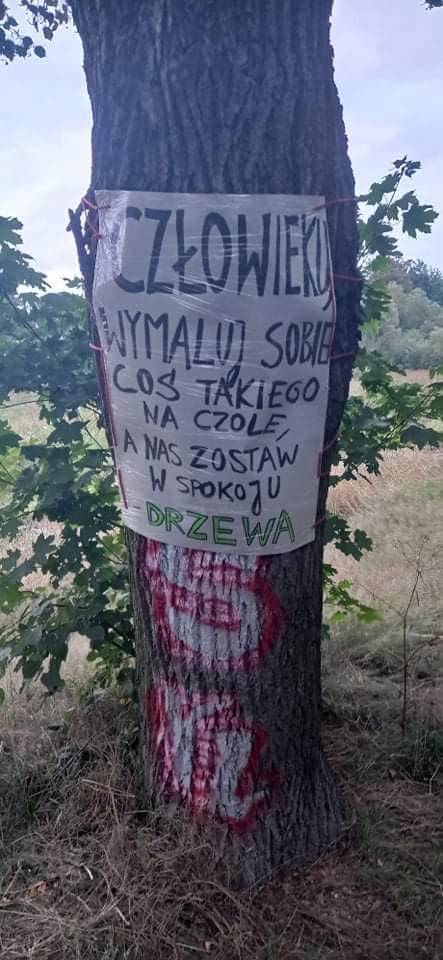 CZŁOWIEKU,
WYMALUJ SOBIE
COŚ TAKIEGO
NA CZOLE,
A NAS ZOSTAW
W SPOKOJU
DRZEWA